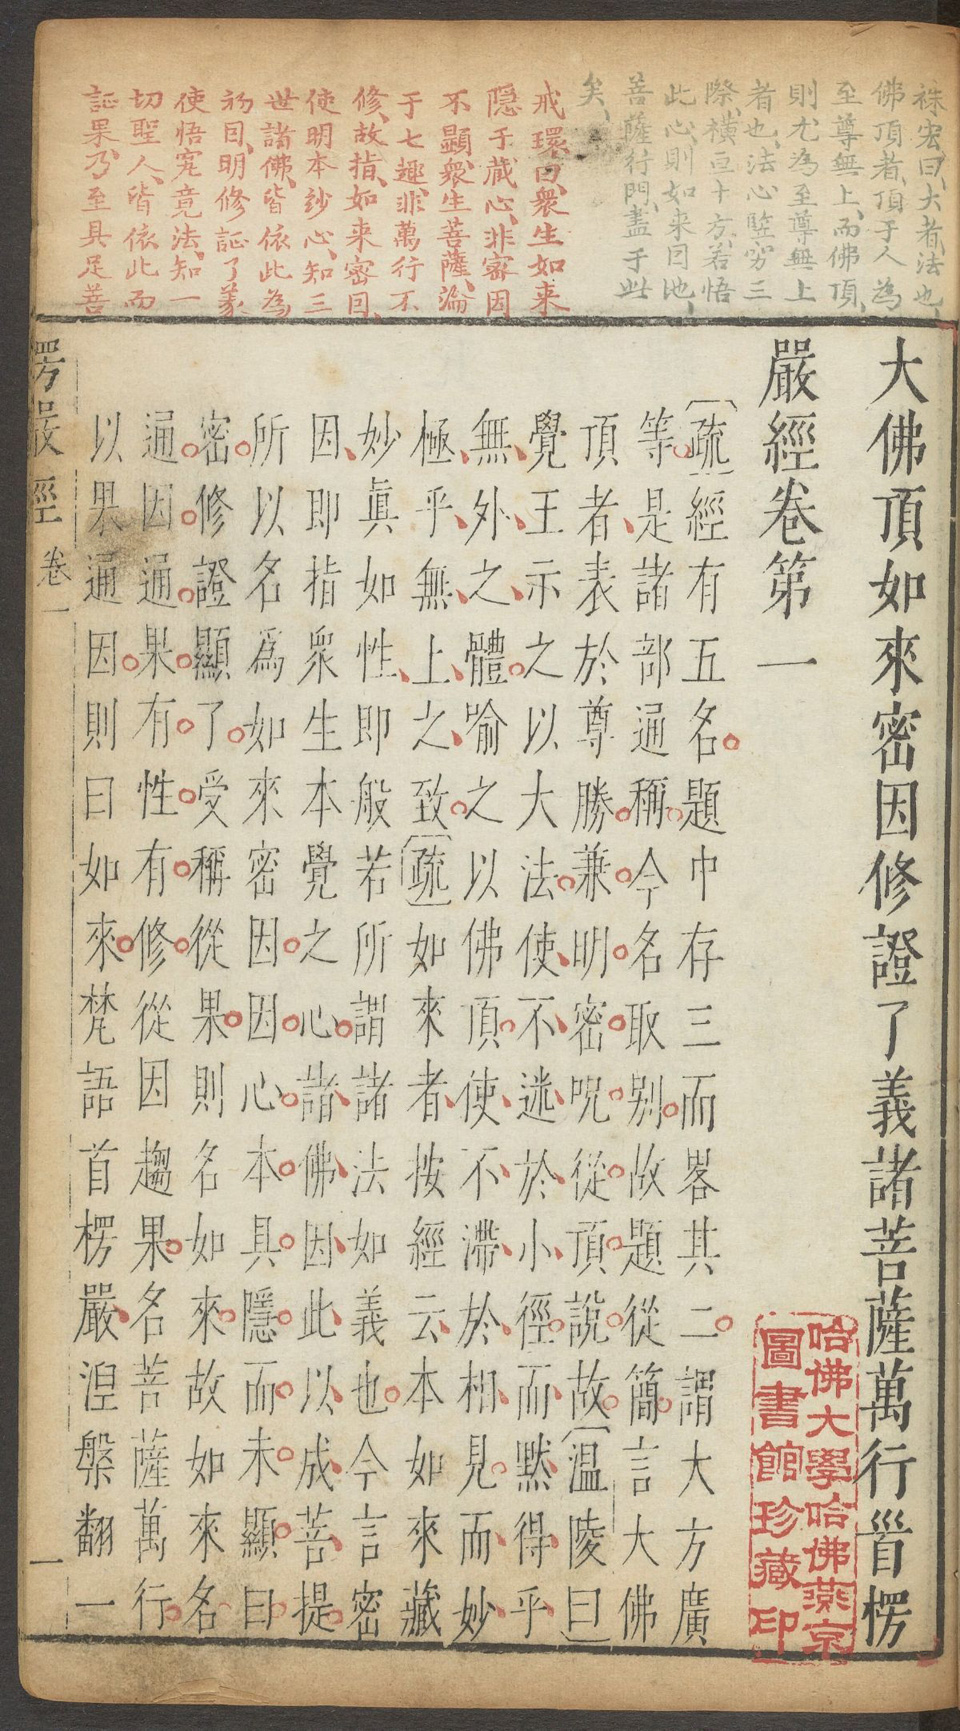 袾宏曰、大者、法也、
佛頂者、頂于人為
至尊無上、而佛頂、
則尤為至尊無上
者也、法心竪穷三
際、橫亘十方、若悟
此心、則如来因地、
菩薩行門、盡于此
矣、
戒環曰、衆生如来
隠于藏心、非密因
不顯、衆生菩薩、淪
于七趣、非萬行不
修、故指如来密因、
使明本妙心、知三
世諸佛、皆依此為
初因、明修証了義
使悟究竟法、知一
切聖人、皆依此而
証果、乃至具足菩
大佛頂如來密因修證了義諸菩薩萬行首楞
嚴經卷第一
疏經有五名題中存三而畧其二謂大方廣
等是諸部通稱今名取别故題從簡言大佛
頂者表於尊勝兼明密呪從頂說故温陵曰
覺王示之以大法使不迷於小徑而黙得乎
無外之體喻之以佛頂使不滯於相見而妙
極乎無上之致疏如來者按經云本如來藏
妙眞如性即般若所謂諸法如義也今言密
因即指衆生本覺之心諸佛因此以成菩提
所以名爲如來密因因心本具隱而未顯曰
密修證顯了受稱從果則名如來故如來名
通因通果有性有修從因趨果名菩薩萬行
以果通因則曰如來梵語首楞嚴涅槃翻一
楞嚴經 卷一 一
哈佛大學哈佛燕京
圖書館珍藏印